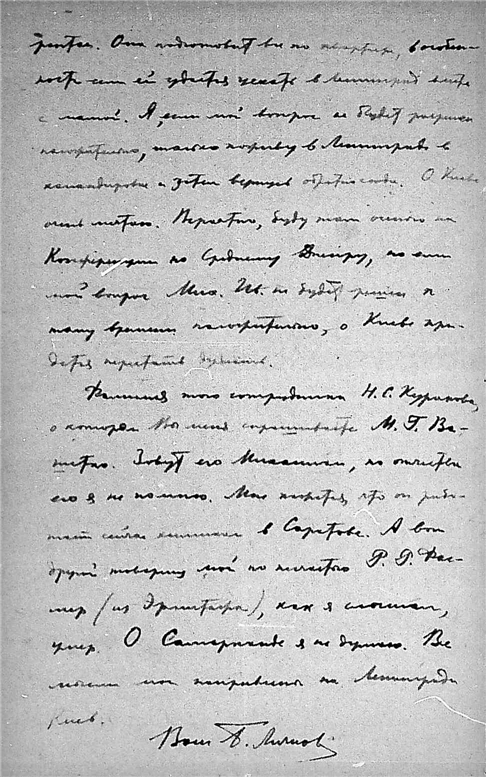 Она подготовит вам по квартире, в особен-
ности если ей удастся уехать в Ленинград вместе
с мамой. Я, если мой вопрос не будет разрешен
положительно, только поживу в Ленинграде в
командировке и затем вернусь обратно сюда. О Киеве
очень мечтаю. Вероятно, буду там осенью на
Конференции по Среднему Днепру, но если
мой вопрос Мих. Ил. не будет решен к
тому времени положительно, о Киеве при-
дется перестать думать.
Фамилия того сотрудника Н. С. Курнакова,
о котором Вы меня спрашиваете М. Г.
Зовут его Михаилом, но отчества
его я не помню. Мне кажется, что он рабо-
тает сейчас химиком в Саратове. А вот
другой товарищ мой по несчастью Р. Р. Фас-
мер (из Эрмитажа), как я слышал,
умер. О Самарканде я не думаю. Все
мысли мои направлены на Ленинград и
Киев.
Ваш Б.